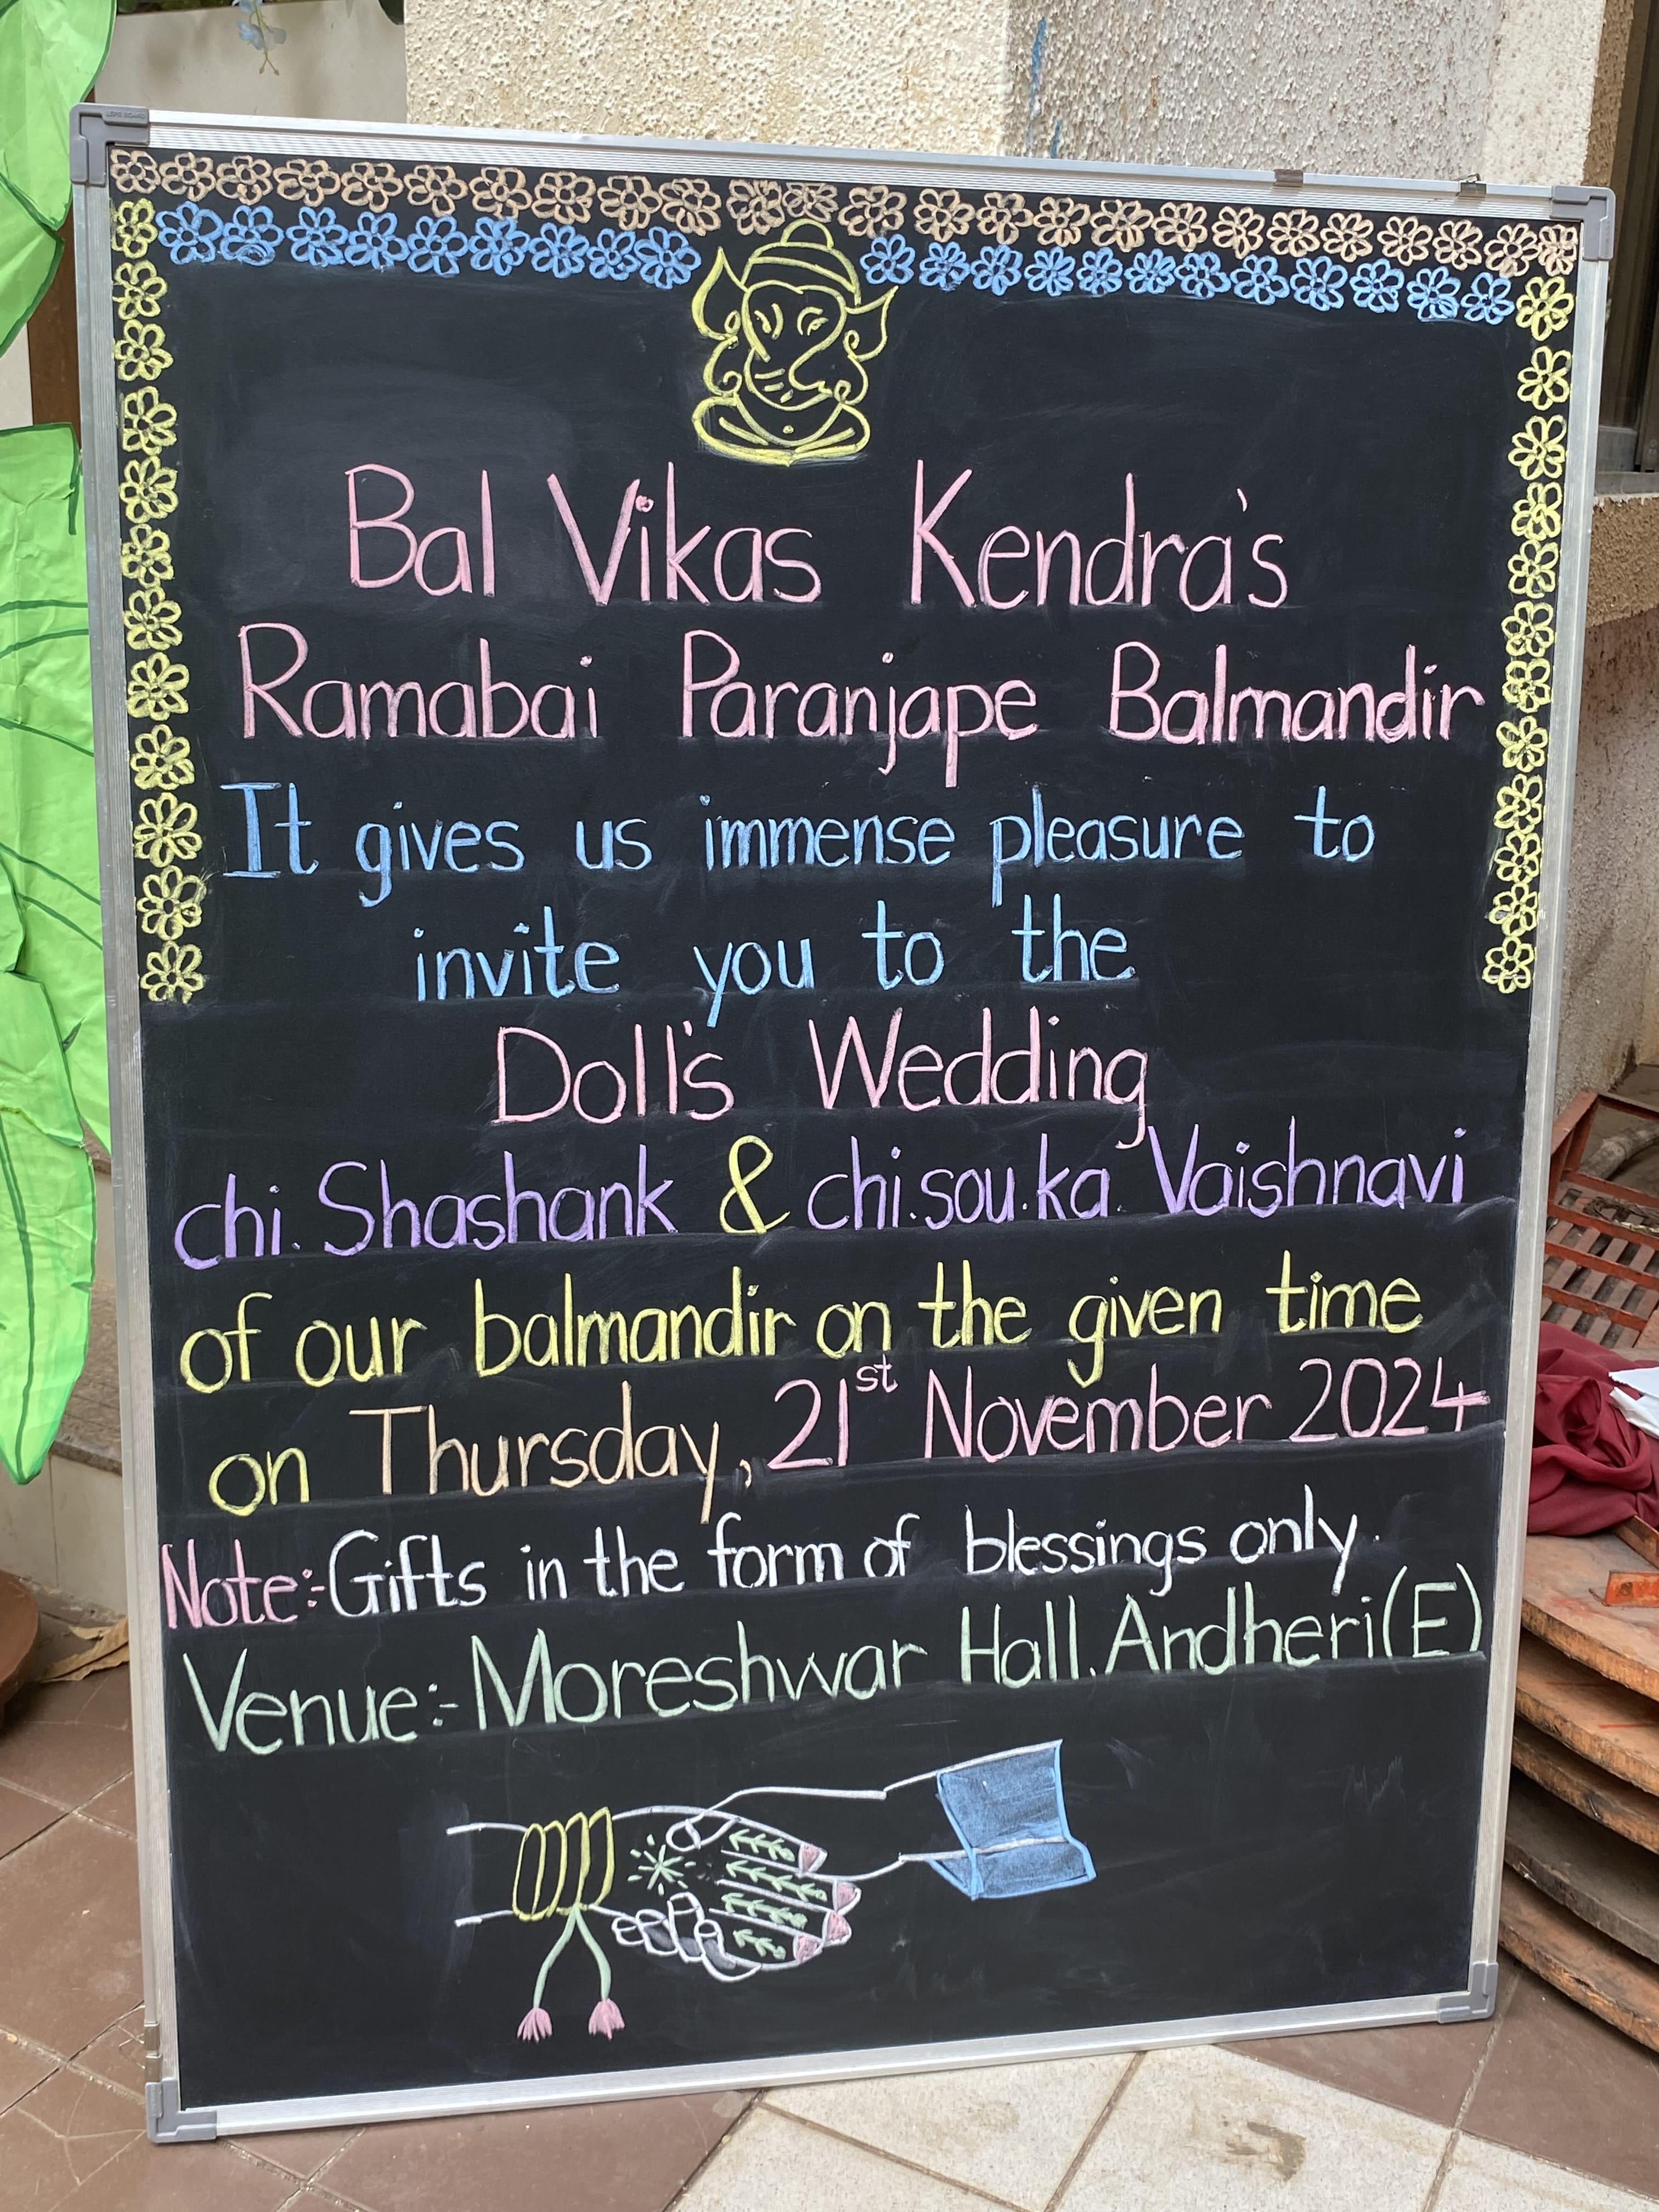 Bal Vikas Kendra's
Ramabai Paranjape Balmandir
It gives us immense pleasure to
invite you to the
Doll's Wedding
chi. Shashank & chi.sou.ka. Vaishnavi
of our balmandir on the given time
on Thursday, 21st November 2024
Note:- Gifts in the form of blessings only.
Venue:- Moreshwar Hall, Andheri (E)